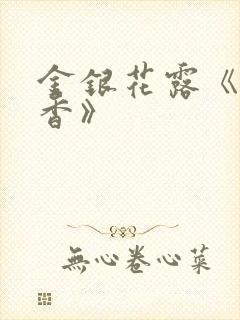 金银花露《
香》
無心卷心菜